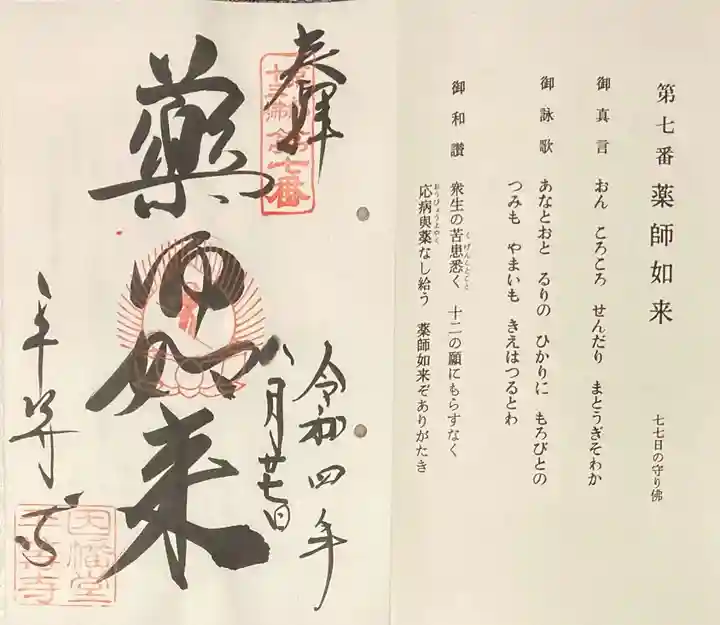 第七番 薬師如来 七七日の守り佛
御真言 おん ころころ せんだり まとうぎそわか
御詠歌 あなとおと るりの ひかりに もろびとの
つみも やまいも きえはつるとわ
御和讃 衆生の苦患悉く 十二の願にもらすなく
くげんことごと
応病與薬なし給う 薬師如来ぞありがたき
おうびょうよやく
奉拝
第七番
令和四年
八月廿七日
薬師如来
平等寺
因幡堂
平等寺